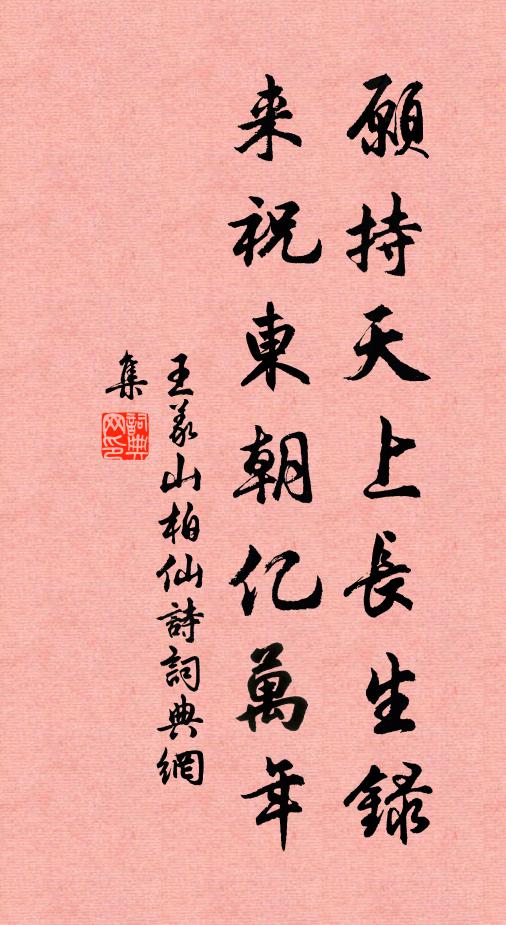 願持天上長生録
来祝東朝亿萬年
王义山柏仙詩詞典網
集
詞典網印